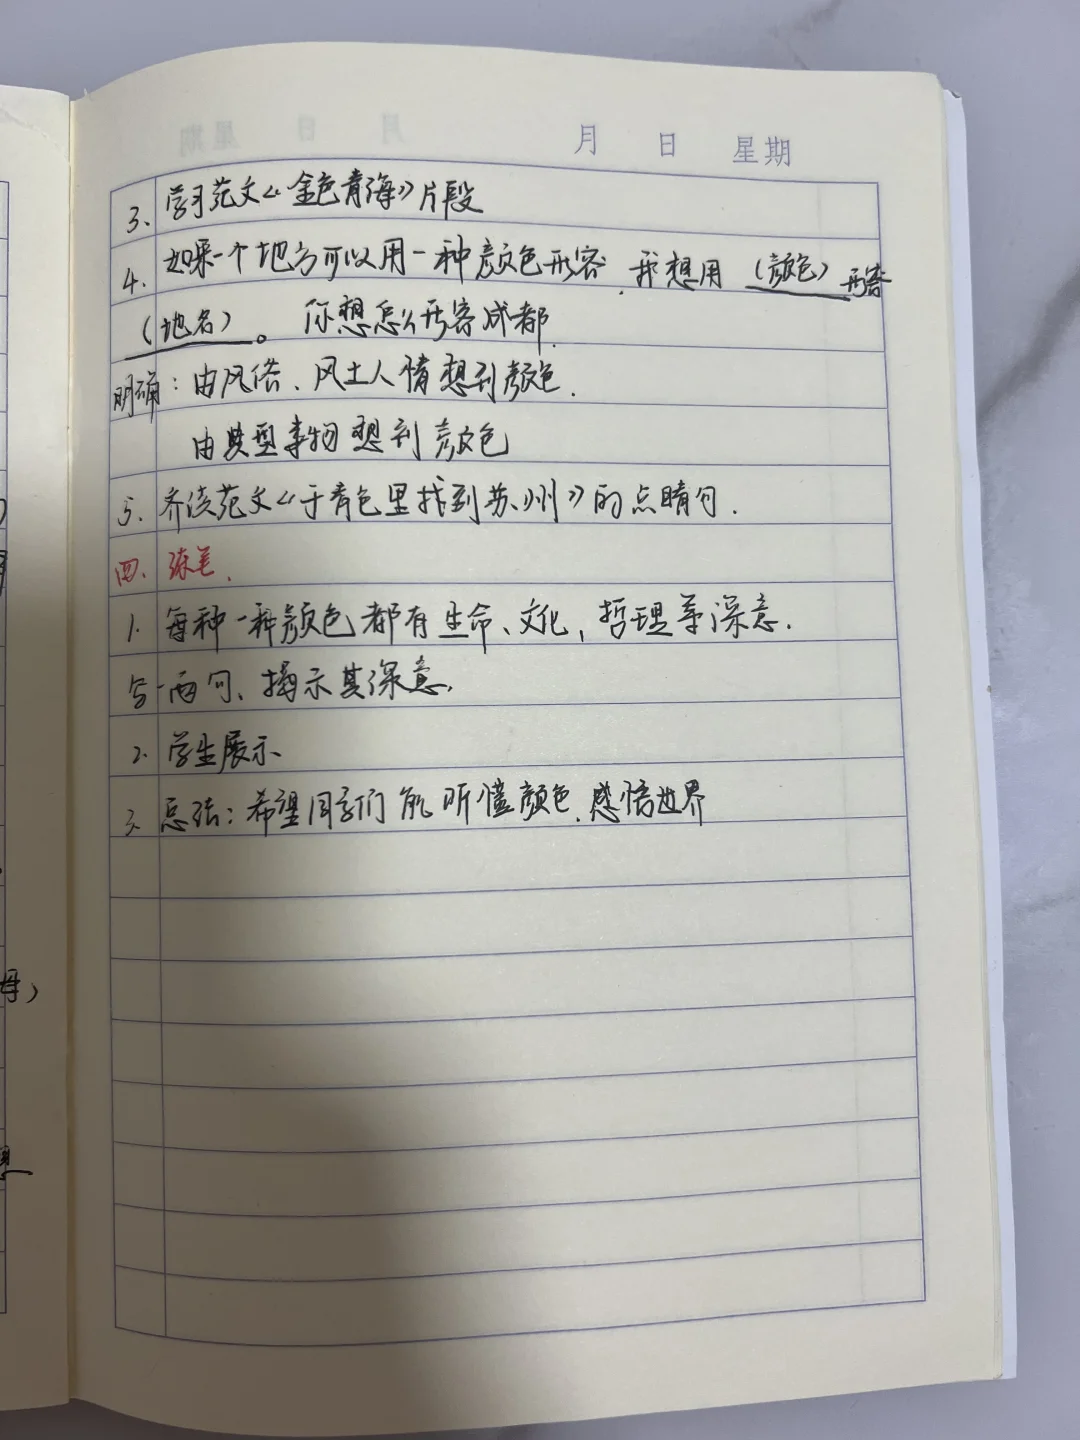 月 日 星期
3. 学习范文《金色青海》片段
4. 如果一个地方可以用一种颜色形容，我想用（颜色）形容
（地名）。你想怎么形容成都.
明确：由风俗、风土人情想到颜色.
由典型事物想到颜色
5. 齐读范文《于青色里找到苏州》的点睛句.
四、练笔.
1. 每种一种颜色都有生命、文化，哲理等深意.
写一两句、揭示其深意.
2. 学生展示
3. 总结：希望同学们能听懂颜色.感悟世界